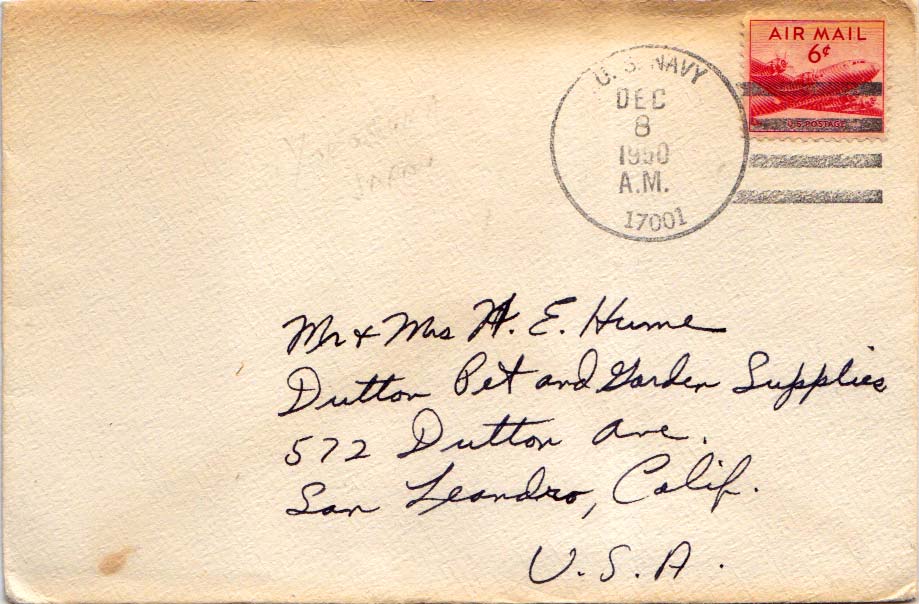 AIR MAIL
6¢
U.S. POSTAGE
U.S. NAVY
DEC
8
1950
A.M.
17001
JAPAN
Mr & Mrs H. E. Hume
Dutton Pet and Garden Supplies
572 Dutton Ave.
San Leandro, Calif.
U.S.A.